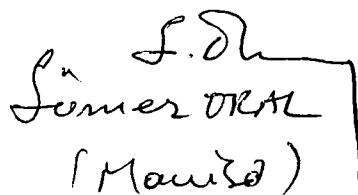 S. Oral
Sümer ORAL
(Manisa)